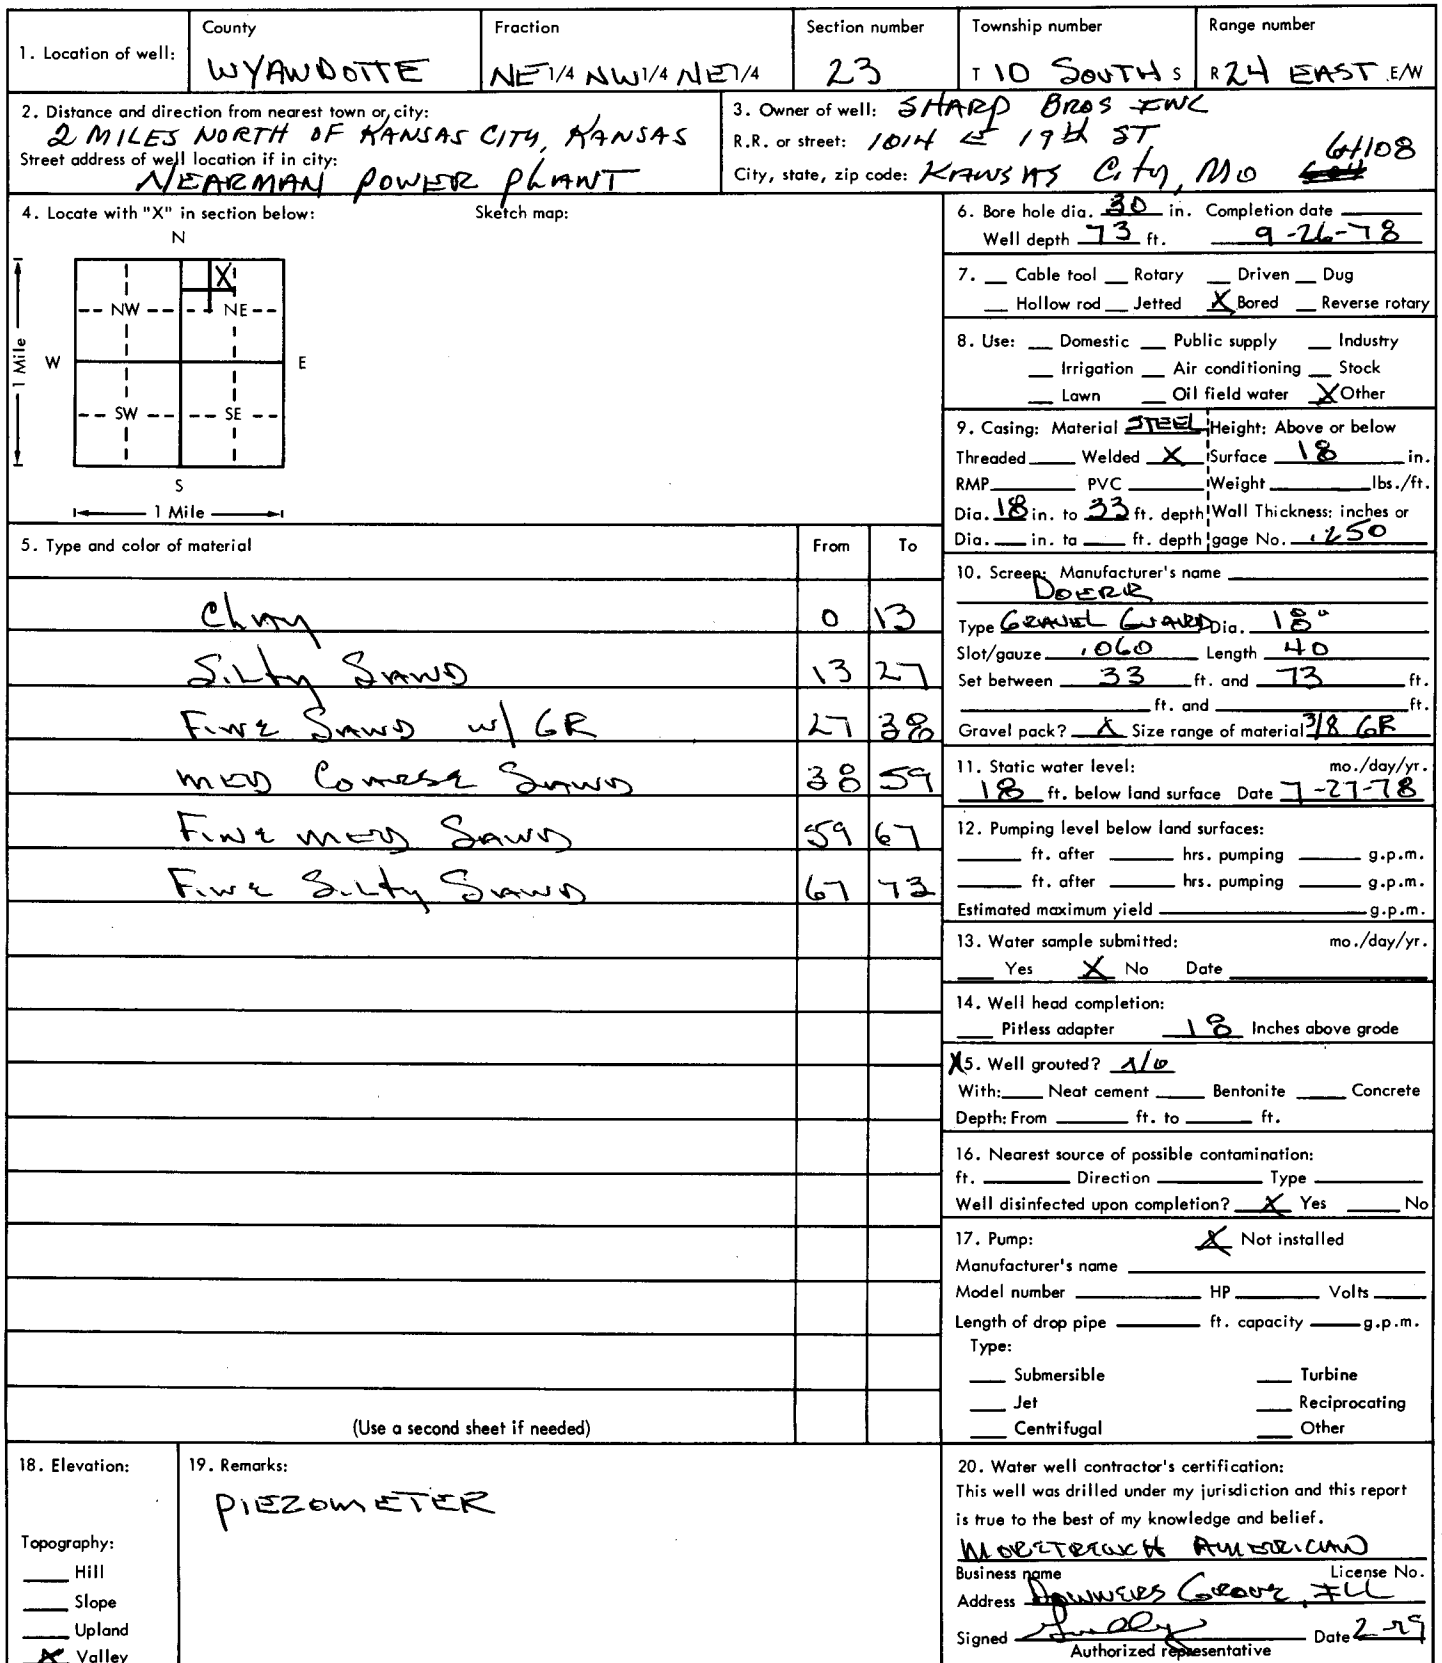 1. Location of well:
County
WYANDOTTE
Fraction
NE 1/4 NW 1/4 NE 1/4
Section number
23
Township number
T 10 SOUTH S
Range number
R 24 EAST E/W
2. Distance and direction from nearest town or city:
2 MILES NORTH OF KANSAS CITY, KANSAS
Street address of well location if in city:
NEARMAN POWER PLANT
3. Owner of well: SHARP BROS INC
R.R. or street: 1014 E 19th ST
City, state, zip code: KANSAS City, MO 64108
4. Locate with "X" in section below:
Sketch map:
N
X
NW NE
1 Mile
W E
SW SE
S
1 Mile
5. Type and color of material From To
Clay 0 13
Silty SAND 13 27
FINE SAND w/ GR 27 38
MED COARSE SAND 38 59
FINE MED SAND 59 67
FINE SILTY SAND 67 73
(Use a second sheet if needed)
6. Bore hole dia. 30 in. Completion date
Well depth 73 ft. 9-26-78
7. Cable tool Rotary Driven Dug
Hollow rod Jetted X Bored Reverse rotary
8. Use: Domestic Public supply Industry
Irrigation Air conditioning Stock
Lawn Oil field water X Other
9. Casing: Material STEEL Height: Above or below
Threaded Welded X Surface 18 in.
RMP PVC Weight lbs./ft.
Dia. 18 in. to 33 ft. depth Wall Thickness: inches or
Dia. in. to ft. depth gage No. .250
10. Screen: Manufacturer's name
DOERR
Type GRAVEL GUARD Dia. 18"
Slot/gauze .060 Length 40
Set between 33 ft. and 73 ft.
ft. and ft.
Gravel pack? X Size range of material 3/8 GR
11. Static water level: mo./day/yr.
18 ft. below land surface Date 7-27-78
12. Pumping level below land surfaces:
ft. after hrs. pumping g.p.m.
ft. after hrs. pumping g.p.m.
Estimated maximum yield g.p.m.
13. Water sample submitted: mo./day/yr.
Yes X No Date
14. Well head completion:
Pitless adapter 18 Inches above grade
X5. Well grouted? NO
With: Neat cement Bentonite Concrete
Depth: From ft. to ft.
16. Nearest source of possible contamination:
ft. Direction Type
Well disinfected upon completion? X Yes No
17. Pump: X Not installed
Manufacturer's name
Model number HP Volts
Length of drop pipe ft. capacity g.p.m.
Type:
Submersible Turbine
Jet Reciprocating
Centrifugal Other
18. Elevation:
Topography:
Hill
Slope
Upland
X Valley
19. Remarks:
PIEZOMETER
20. Water well contractor's certification:
This well was drilled under my jurisdiction and this report
is true to the best of my knowledge and belief.
MORETRENCH AMERICAN
Business name License No.
Address DOWNERS GROVE, ILL
Signed Date
Authorized representative